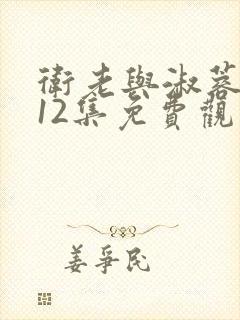 衛老與淑蓉
12集免費觀
姜爭民